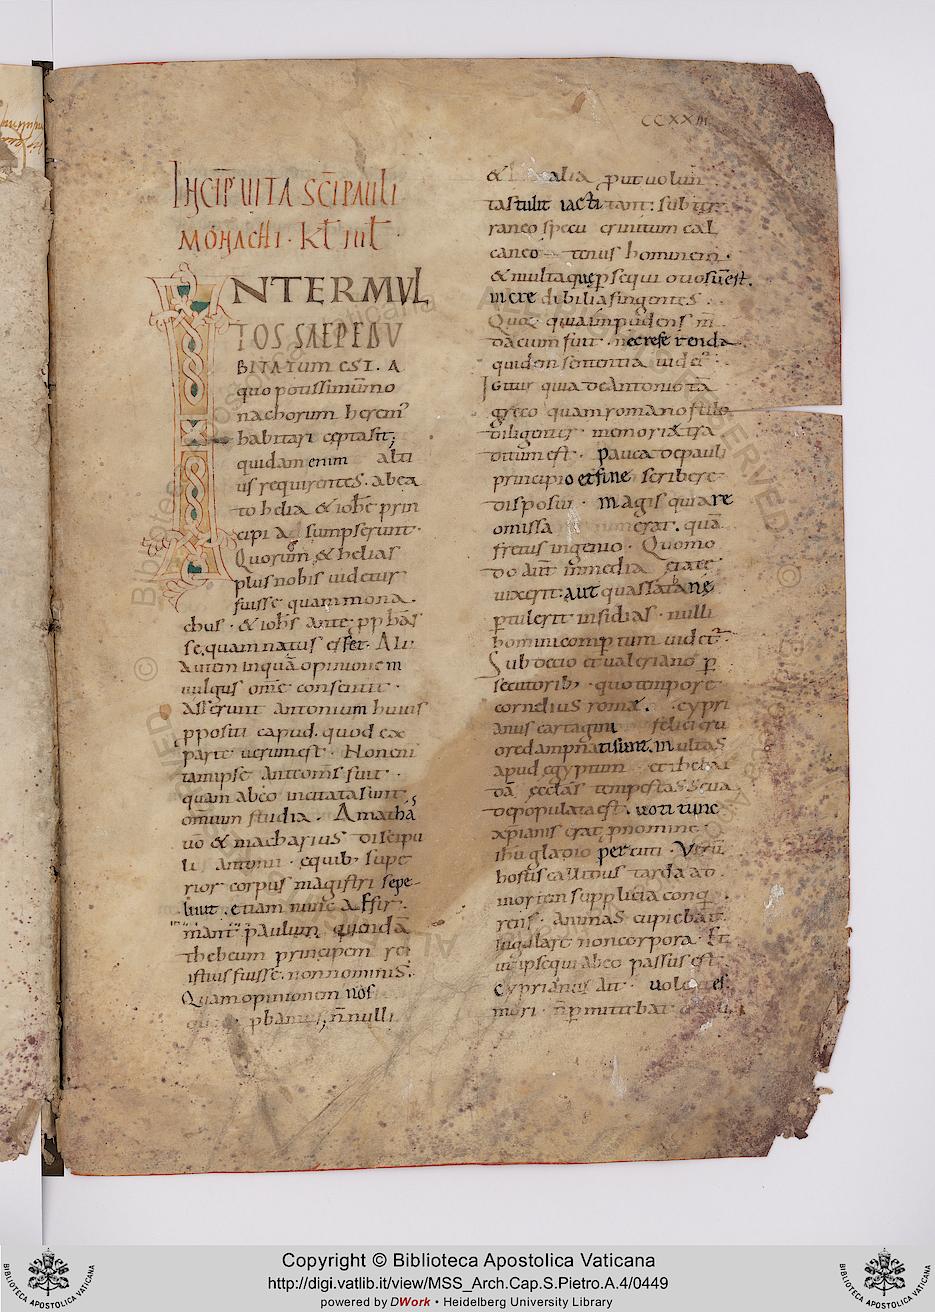 CCXXIII
INCIP UITA SCI PAULI
MONACHI . KL IIII
INTER MUL
TOS SAEPE DU
BITATUM EST . A
quo potissimum mo
nachorum herem
habitari ceptasit;
quidam enim alti
us requirentes . abea
to helia & iohe prin
cipi ad sumpserunt .
Quorum & helias
plus nobis uidetur
fuisse quam mona
chus . & iohs ante pphas
se, quam natus esset . Alii
autem inqua opinionem
uulgus ome consentit .
Asserunt antonium huius
ppositi capud . quod ex
parte uerum est . Non eni
tam ipse ante oms fuit .
quam ab eo incitata sunt
omium studia . Amatha
uo & macharius discipu
li antonii . equib, supe
rior corpus magistri sepe
liuit . etiam nunc affir
mant paulum quenda
thebeum principem rei
istius fuisse . non nominis .
Quam opinionem nos
phamus, n nulli
& alia put uolun
tas tulit iactitant : subter
raneo specu crinitum cal
caneo tenus hominem .
& multa que psequi otiosu est .
incredibilia fingentes .
Quor quia impudens m
dacium fuit . nec refe renda
quidem sententia uidet .
Igitur quia de Antonio ta
greco quam romano stilo
diligenter memorie tra
ditum est . pauca de pauli
principio et fine scribere
disposui . magis quia re
omissa erat . qua
fretus ingenio . Quomo
do aut in media etate
uixerit : aut quas satane
ptulerit insidias . nulli
hominum comptum uidet .
Sub decio et ualeriano p
secutorib, . quo tempore
cornelius rome . cypri
anus cartagini felici cru
ore dampnati sunt . multas
apud egyptum et thebai
da ecclas tempestas seua
depopulata est . uoti tunc
xpianis erat p nomine
ihu gladio percuti . Veru
hostis callidus tarda ad
mortem supplicia conq
rens . animas cupiebat
iugulare non corpora . Et
ut ipse qui ab eo passus est
cyprianus ait . uolentes
mori . n pmittebat
Copyright © Biblioteca Apostolica Vaticana
http://digi.vatlib.it/view/MSS_Arch.Cap.S.Pietro.A.4/0449
powered by DWork • Heidelberg University Library